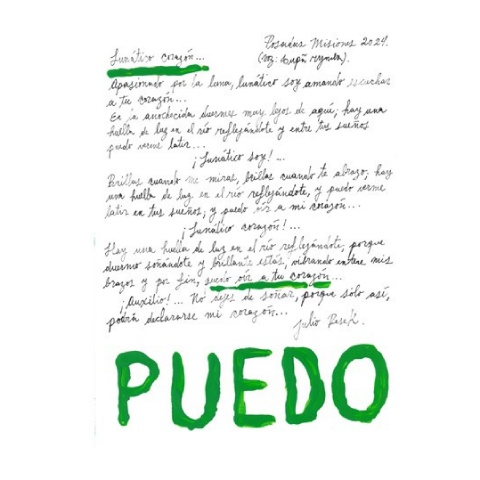 Lunático corazón...
Posadas Misiones 2024.
(voz:
Apasionado por la luna, lunático soy amando escuchar
a tu corazón...
En la anochecida duermes muy lejos de aquí; hay una
huella de luz en el río reflejándote y entre tus sueños
puedo verme latir...
¡Lunático soy!...
Brillas cuando me miras, brillas cuando te abrazo; hay
una huella de luz en el río reflejándote, y puedo verme
latir en tus sueños; y puedo oír a mi corazón...
¡Lunático corazón!...
Hay una huella de luz en el río reflejándote, porque
duermo soñándote y brillante estás, vibrando entre mis
brazos y por fin, puedo oír a tu corazón...
¡Auxilio!... No dejes de soñar, porque sólo así,
podrá declararse mi corazón...
Julio
PUEDO